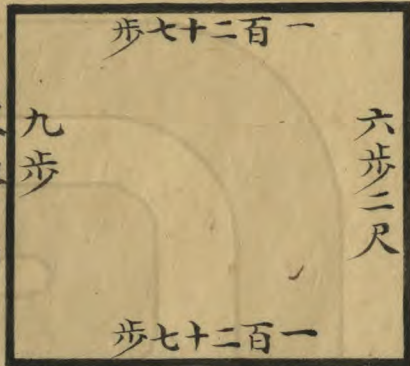 一百二十七步
六步二尺
九步
一百二十七步